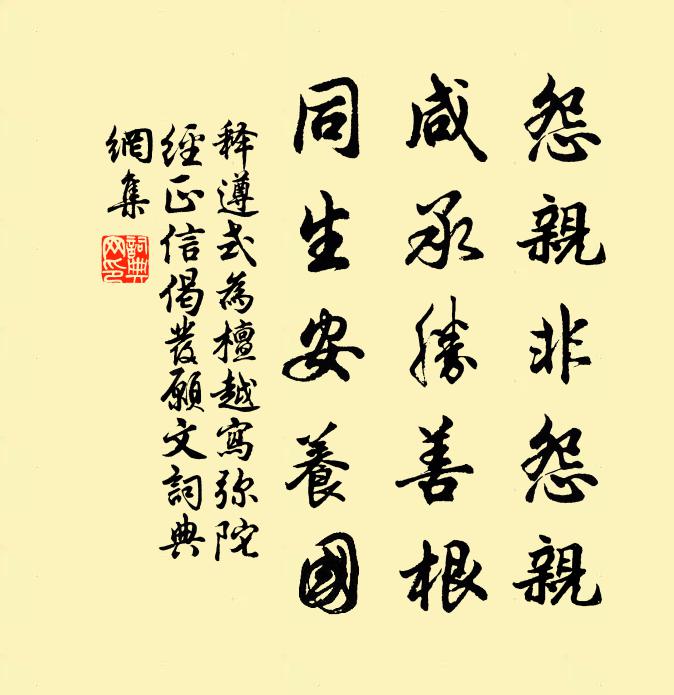 怨親非怨親
咸承勝善根
同生安養國
释遵式為檀越寫弥陀
經正信偈發願文詞典
網集
詞典網印